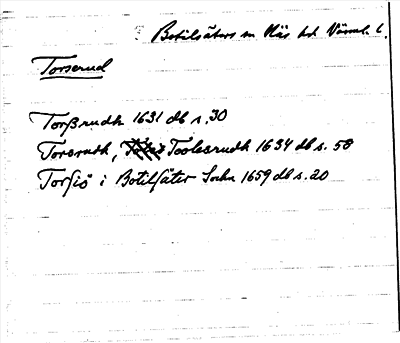 Botilsäters sn Näs hd Värml. l.
Torserud
Torßrudh 1631 db s. 30
Torsruth, Toolesrudh 1634 db s. 58
Torsiö i Botilsäter Sochn 1659 db s. 20